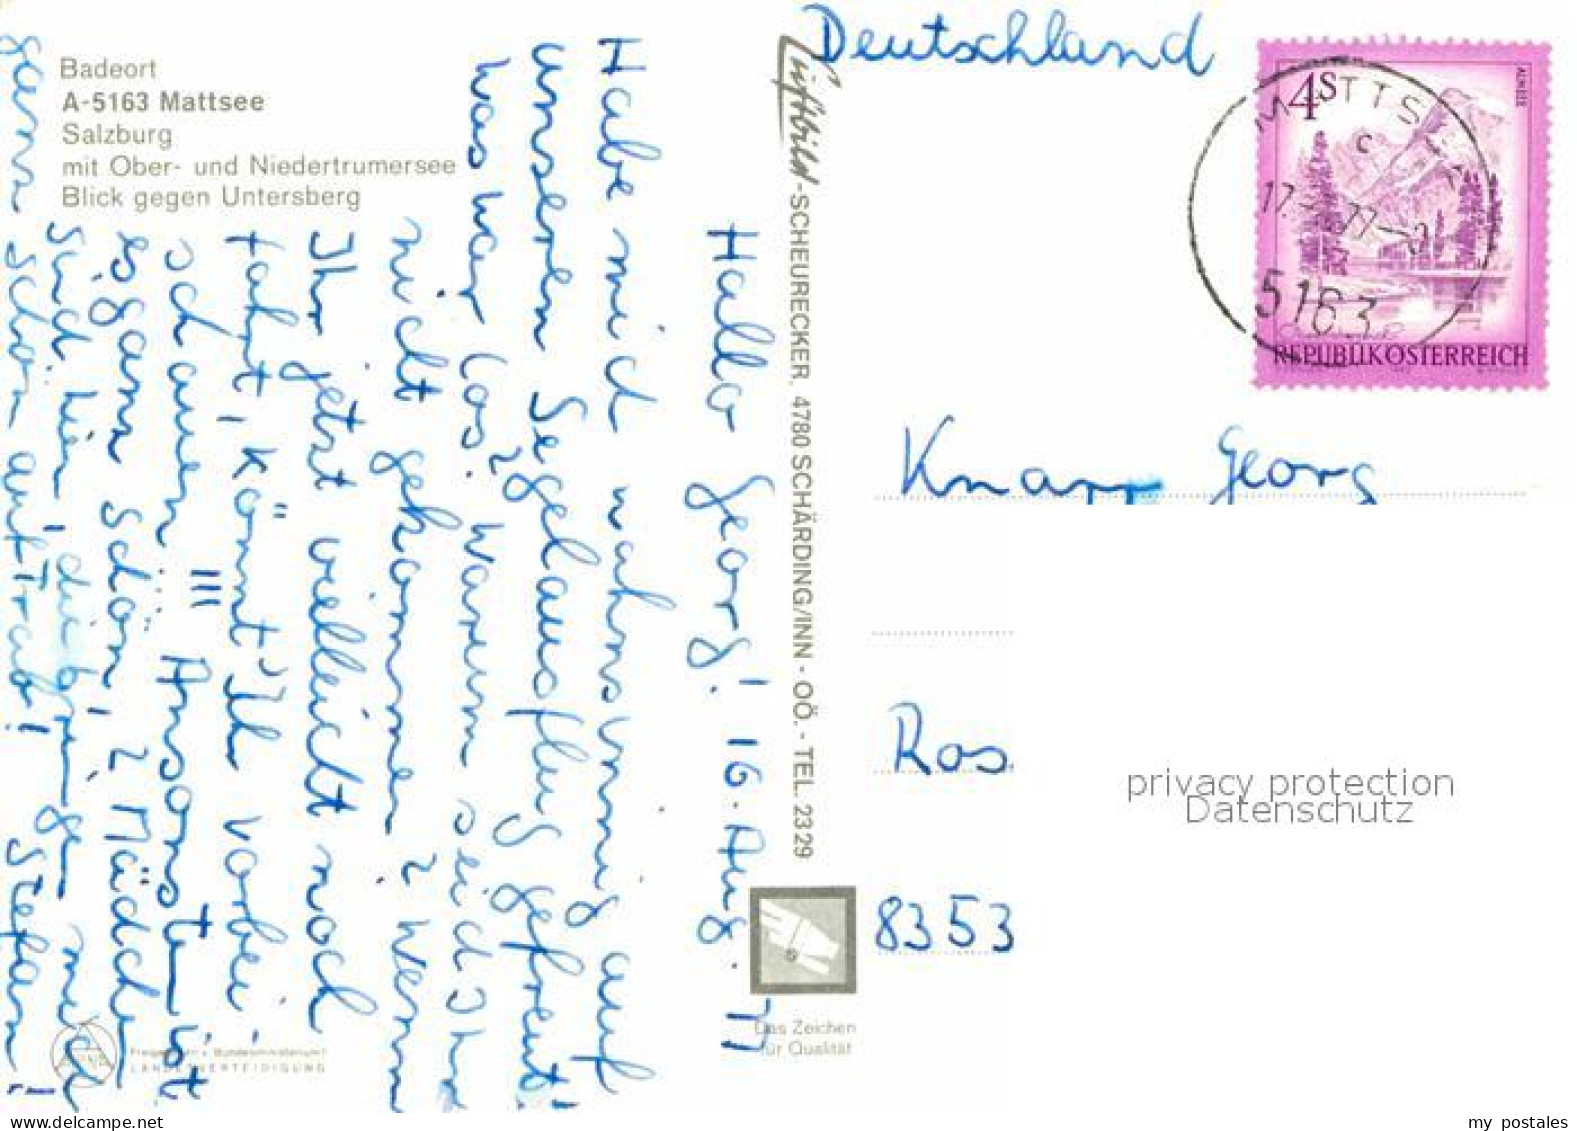 Badeort
A-5163 Mattsee
Salzburg
mit Ober- und Niedertrumersee
Blick gegen Untersberg
Hallo Georg! 16. Aug. 77
Habe mich wahnsinnig auf
unseren Segelausflug gefreut!
Was war los? Warum seid Ihr
nicht gekommen? Wenn
Ihr jetzt vielleicht noch
fahrt, könnt Ihr vorbei-
schauen... !!! Ansonsten ist
es ganz schön! 2 Mädchen
sind hier, die bringen mich
ganz schön auf Trab! Stefan
Luftbild-SCHEURECKER, 4780 SCHÄRDING/INN - OÖ. - TEL. 2329
Das Zeichen
für Qualität
Freigegeben v. Bundesministerium f.
LANDESVERTEIDIGUNG
Deutschland
4S
ALMSEE
REPUBLIK ÖSTERREICH
MATTSEE
c
17. 77
5163
Knarr Georg
Ros
8353
privacy protection
Datenschutz
www.delcampe.net
my postales